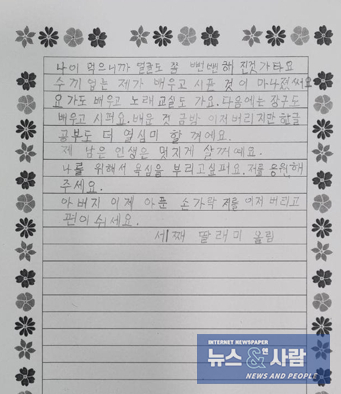 나이 먹으니까 얼굴도 좀 뻔뻔해 진것 가타요
수끼 업는 제가 배우고 시픈 것이 마나졌써요
요가도 배우고 노래교실도 가요. 다음에는 장구도
배우고 시퍼요. 배운 것 금방 이저버리지만 한글
공부도 더 열심미 할 꺼에요.
제 남은 인생은 멋지게 살꺼예요.
나를 위해서 욕심을 부리고 실퍼요. 저를 응원해
주세요.
아버지 이제 아푼 손가락 저를 이저 버리고
편이 쉬세요.
세째 딸래미 올림
INTERNET NEWSPAPER
뉴스&앤사람
NEWS AND PEOPLE